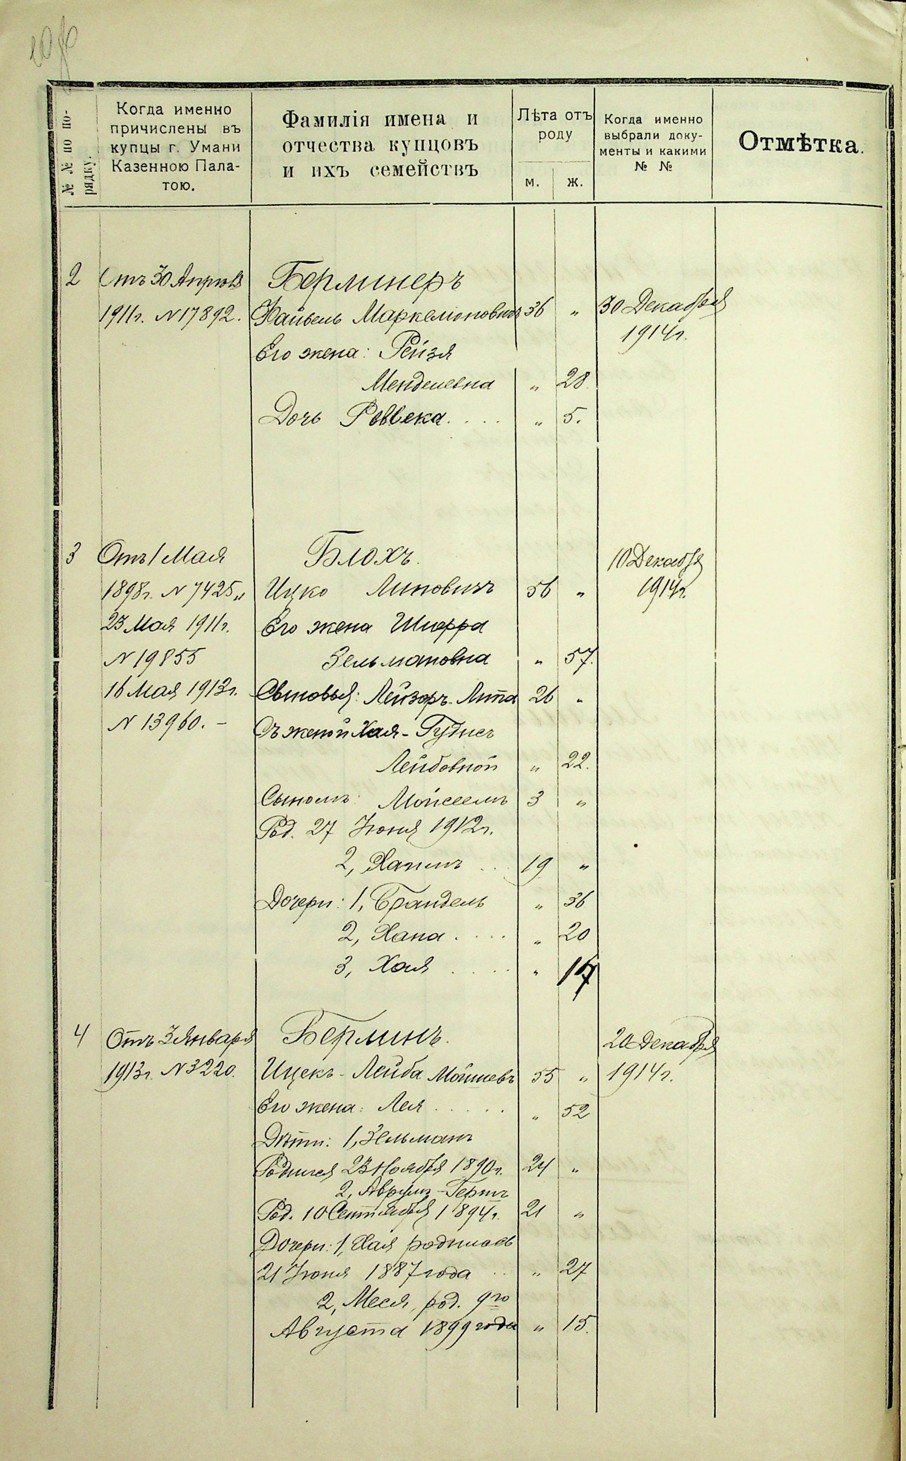 № № по по-
рядку.
Когда именно
причислены въ
купцы г. Умани
Казенною Пала-
тою.
Фамилія имена и
отчества купцовъ
и ихъ семействъ
Лѣта отъ
роду
м.
ж.
Когда именно
выбрали доку-
менты и какими
№ №
Отмѣтка.
2 Отъ 30 Апрѣля Берлинеръ
1911г. № 17892. Хайвель 36 „ 30 Декабря
1914г.
Его жена: Рейзя
Менделевна „ 28
Дочь Роввека . . . . „ 5.
3 Отъ 1 Мая Блохъ. 10 Декабря
1898г. № 7425 „ Ицко Липовичъ 56 „ 1914г.
23 Мая 1911г. Его жена
№ 19855 Зельмановна „ 57.
16 Мая 1913г. Сыновья: Лейзоръ-Липа 26 „
№ 13960. – Съ женой Хая-
Лейбовной „ 22.
Сыномъ Мойсеемъ 3 „
Род. 27 Іюня 1912г.
2, Хаимъ . . 19 „
Дочери: 1, Брандель „ 36
2, Хана . . . . „ 20
3, Хая . . . . „ 17
4 Отъ 3 Января Берлинъ. 20 Декабря
1913г. № 3220. Ицекъ-Лейба Мошковъ 55 „ 1914г.
Его жена: Лея . . . . . „ 52
Дѣти: 1, Зельманъ
Родился 23 Ноября 1890г. 24 „
2, Аврумъ-Гершъ
Род. 10 Сентября 1894г. 21 „
Дочери: 1, Хая родилась
21 Іюня 1887 года . . „ 27
2, Меся, род. 9го
Августа 1899 года „ 15.